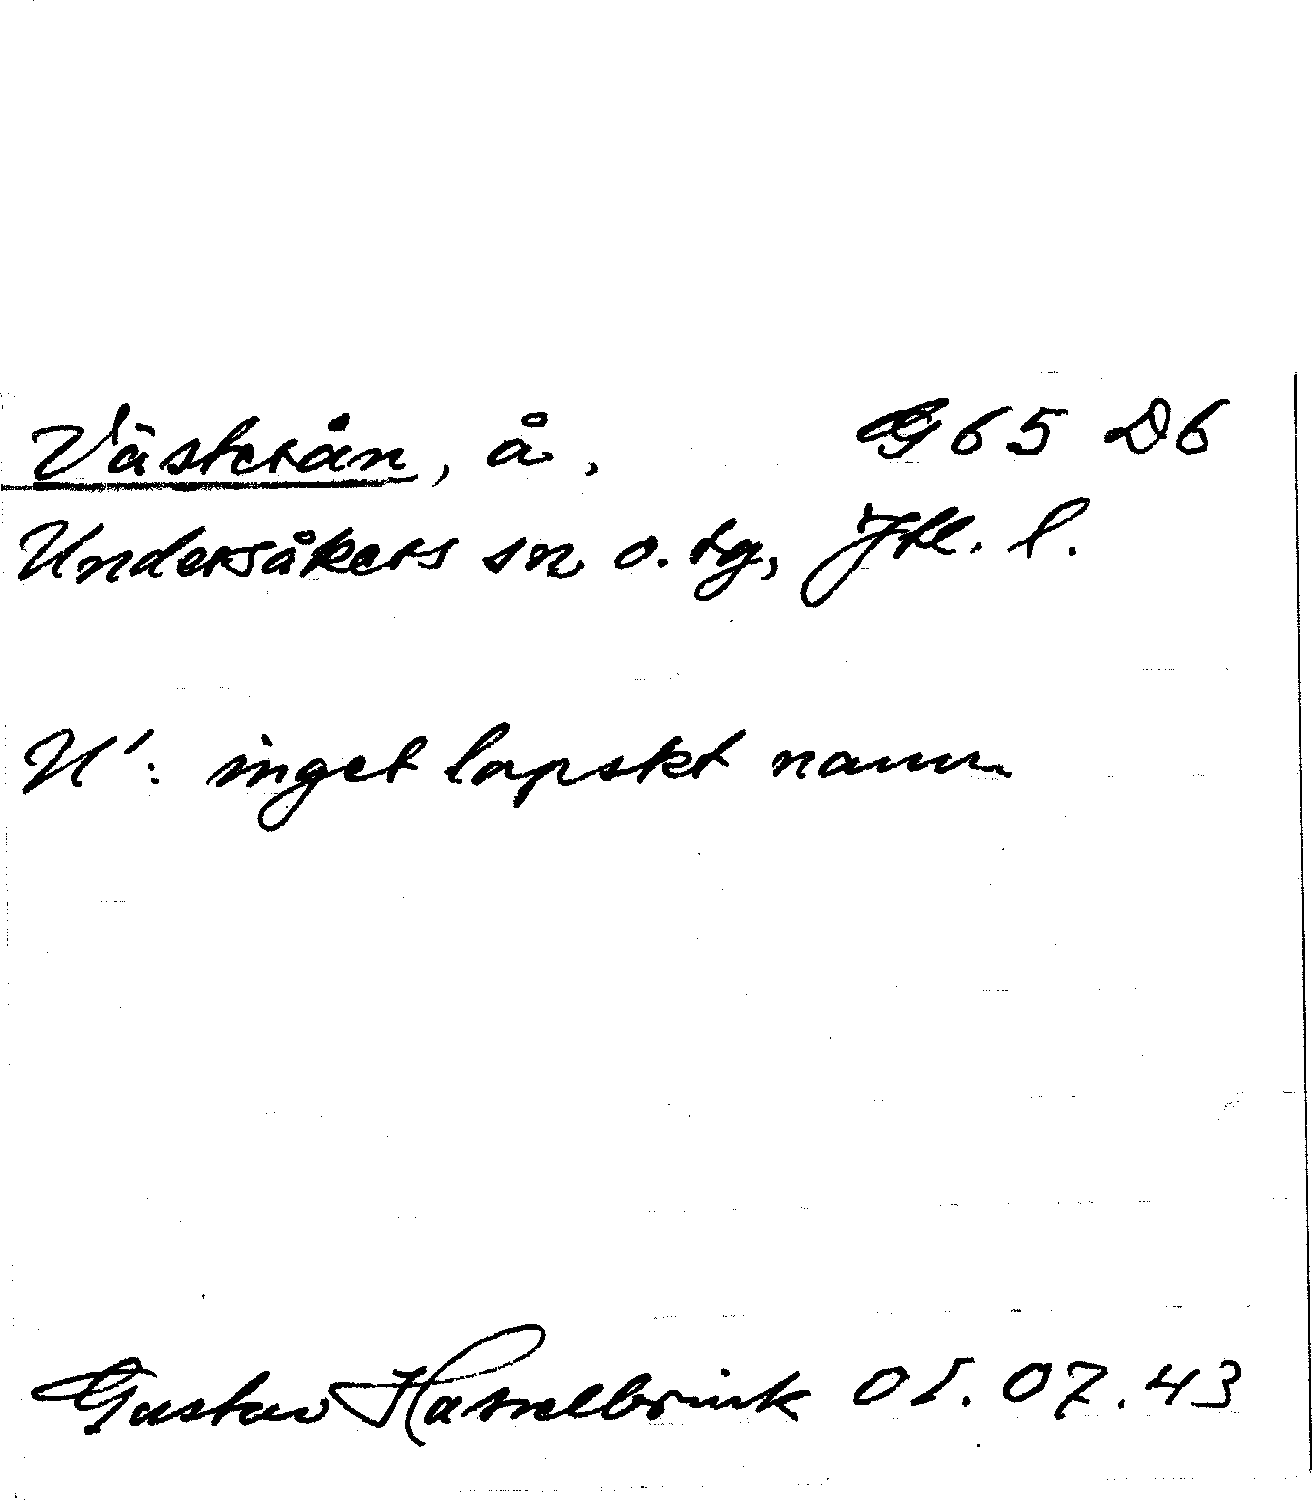 Västerån, å, G 65 D6
Undersåkers sn o. tg, Jtl. l.
U': inget lapskt namn
Gustav Hasselbrink 01.07.43